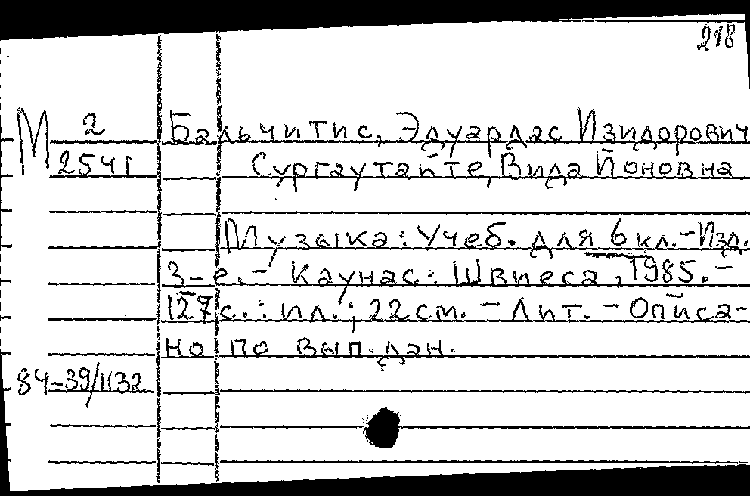 218
М 2
254 г
Бальчитис, Эдуардас Изидорович
Сургаутайте, Вида Йоновна
Музыка: Учеб. для 6 кл. - Изд.
3-е. - Каунас: Швиеса, 1985. -
127 с.: ил.; 22 см. - Лит. - Описа-
но по вып. дан.
84-39/1132